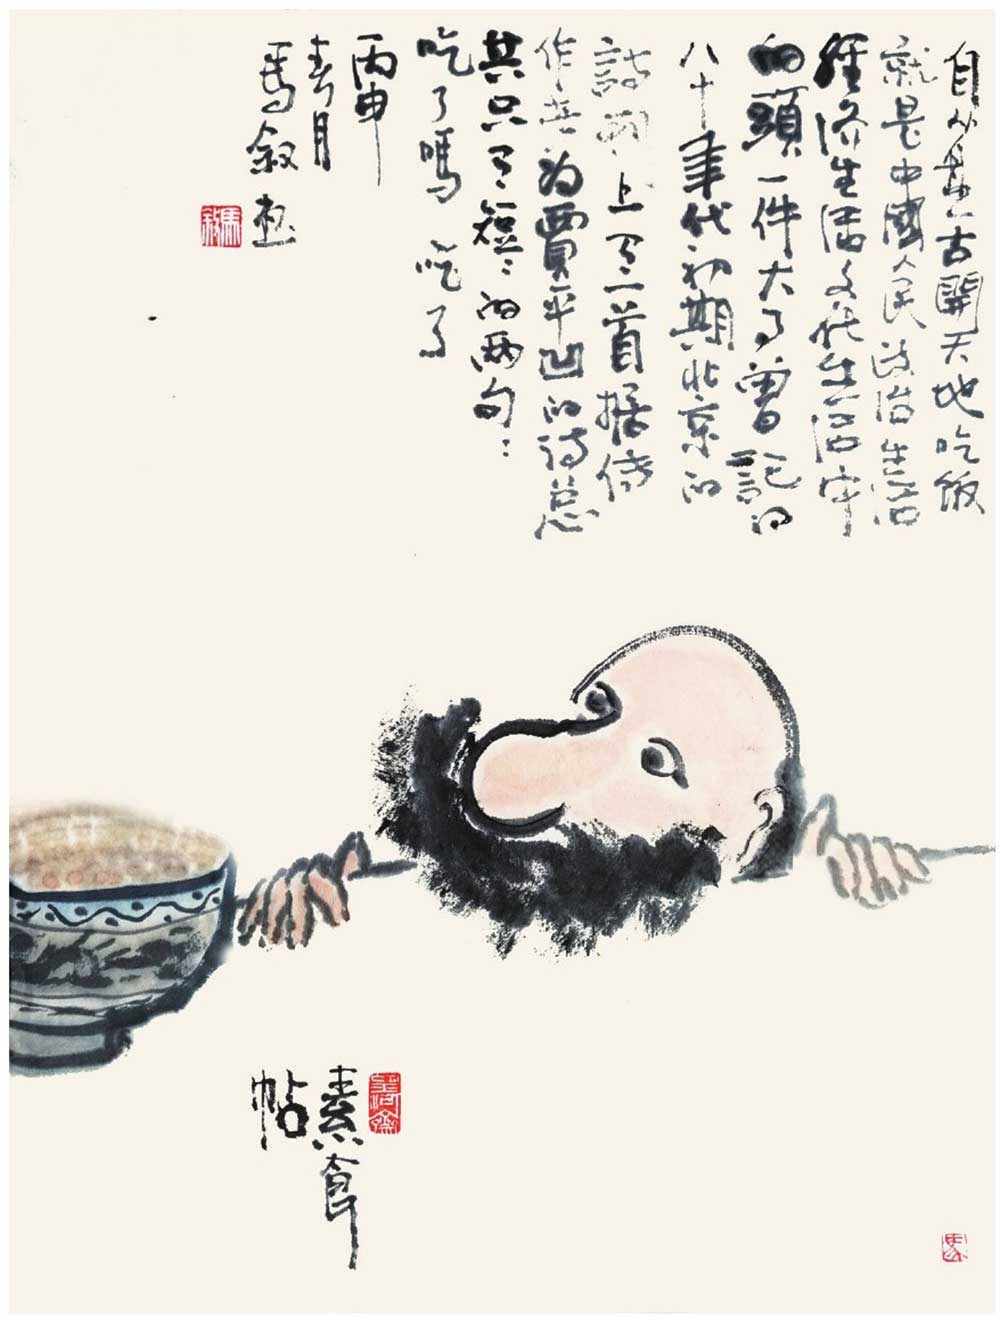 自從盤古開天地吃飯
就是中國人民政治生活
經济生活文化生活中
的頭一件大事曾記得
八十年代初期北京的
詩刊上有一首据传
作者为賈平凹的诗总
共只有短短的两句：
吃了嗎 吃了
丙申
春月
馬叙
馬叙
素食
帖
馬